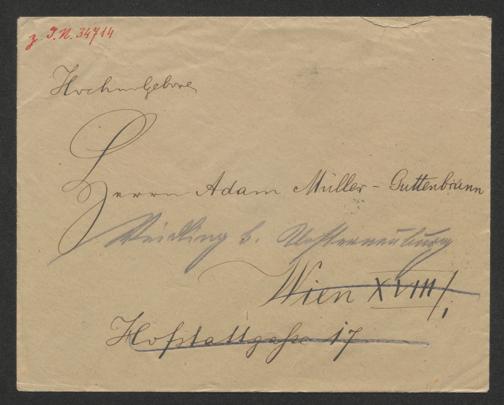 z I.N. 34714
Hochwolgeboren
Herrn Adam Müller-Guttenbrunn
Weidling b. Klosterneuburg
Wien XVIII/1.
Hofstattgasse 17